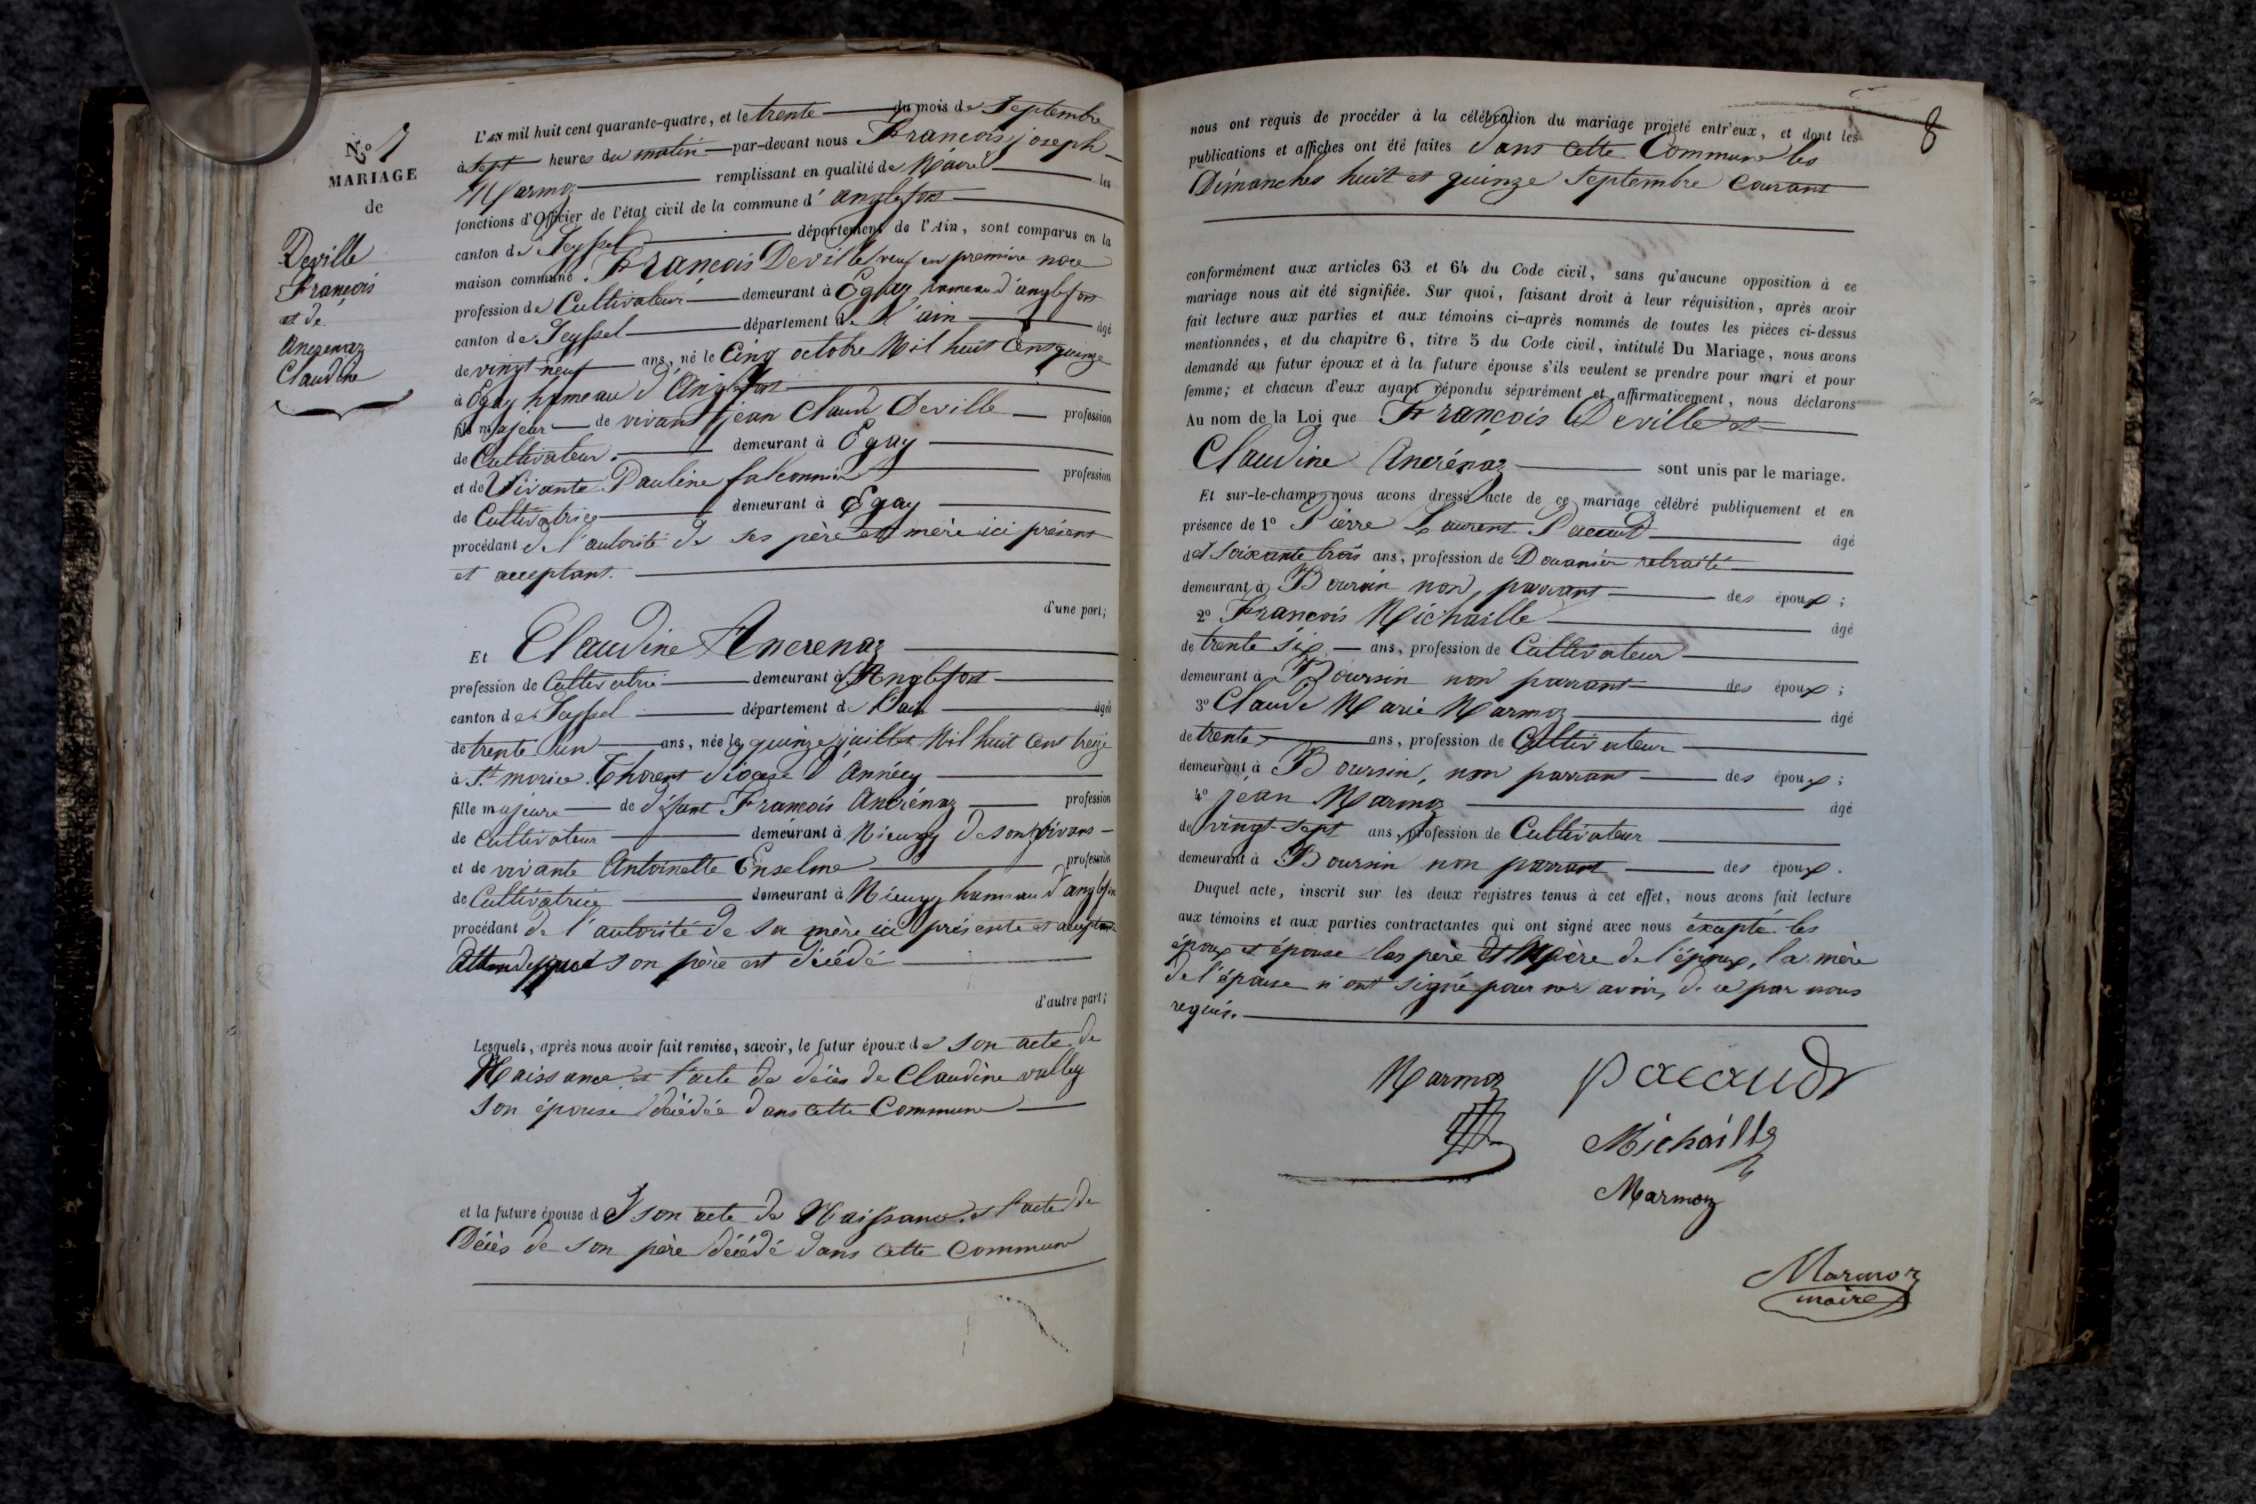 N.º 7
MARIAGE
de
Deville
François
et de
Ancrenaz
Claudine
L'AN mil huit cent quarante-quatre, et le trente du mois de Septembre
à Sept heures du matin par-devant nous François joseph
Marmoz remplissant en qualité de Maire les
fonctions d'Officier de l'état civil de la commune d'anglefort
canton de Seyssel département de l'Ain, sont comparus en la
maison commune François Deville veuf en première noce
profession de Cultivateur demeurant à Egay hameau d'anglefort
canton de Seyssel département de l'ain âgé
de vingt neuf ans, né le Cinq octobre Mil huit Cent quinze
à Egay hameau d'Anglefort
fils majeur de vivant jean Claude Deville profession
de Cultivateur demeurant à Egay
et de Vivante Pauline falconnier profession
de Cultivatrice demeurant à Egay
procédant de l'autorité de ses père et mère ici présent
et acceptant.
d'une part;
Et Claudine Ancrenaz
profession de Cultivatrice demeurant à Anglefort
canton de Seyssel département de l'ain âgée
de trente un ans, née le quinze juillet Mil huit Cent treize
à St. morice Thorent diocese d'Annécy
fille majeure de défunt François Ancrénaz profession
de Cultivateur demeurant à de son vivant
et de vivante Antoinette Enselme profession
de Cultivatrice demeurant à hameau d'anglefort
procédant de l'autorité de sa mère ici présente et acceptante
attendu que son père est décédé
d'autre part;
Lesquels, après nous avoir fait remise, savoir, le futur époux de son acte de
Naissance et l'acte de décès de Claudine valley
son épouse décédée dans cette Commune
et la future épouse de son acte de Naissance et l'acte de
Décès de son père décédé dans cette Commune
8
nous ont requis de procéder à la célébration du mariage projeté entr'eux, et dont les
publications et affiches ont été faites dans cette Commune les
Dimanches huit et quinze Septembre Courant
conformément aux articles 63 et 64 du Code civil, sans qu'aucune opposition à ce
mariage nous ait été signifiée. Sur quoi, faisant droit à leur réquisition, après avoir
fait lecture aux parties et aux témoins ci-après nommés de toutes les pièces ci-dessus
mentionnées, et du chapitre 6, titre 5 du Code civil, intitulé Du Mariage, nous avons
demandé au futur époux et à la future épouse s'ils veulent se prendre pour mari et pour
femme; et chacun d'eux ayant répondu séparément et affirmativement, nous déclarons
Au nom de la Loi que François Deville et
Claudine Ancrénaz sont unis par le mariage.
Et sur-le-champ nous avons dressé acte de ce mariage célébré publiquement et en
présence de 1º Pierre Laurent Pacaud âgé
de soixante trois ans, profession de Douanier retraité
demeurant à Boursin non parrant des époux;
2º François Michaille âgé
de trente six ans, profession de Cultivateur
demeurant à Boursin non parrant des époux;
3º Claude Marie Marmoz âgé
de trente ans, profession de Cultivateur
demeurant à Boursin, non parrant des époux;
4º jéan Marmoz âgé
de vingt-sept ans, profession de Cultivateur
demeurant à Boursin non parrant des époux.
Duquel acte, inscrit sur les deux registres tenus à cet effet, nous avons fait lecture
aux témoins et aux parties contractantes qui ont signé avec nous éxcepté les
époux et épouse les père et Mère de l'époux, la mère
de l'épouse n'ont signé pour ne savoir, de ce par nous
requis.
Marmoz Pacaud
Michaille
Marmoz
Marmoz
maire